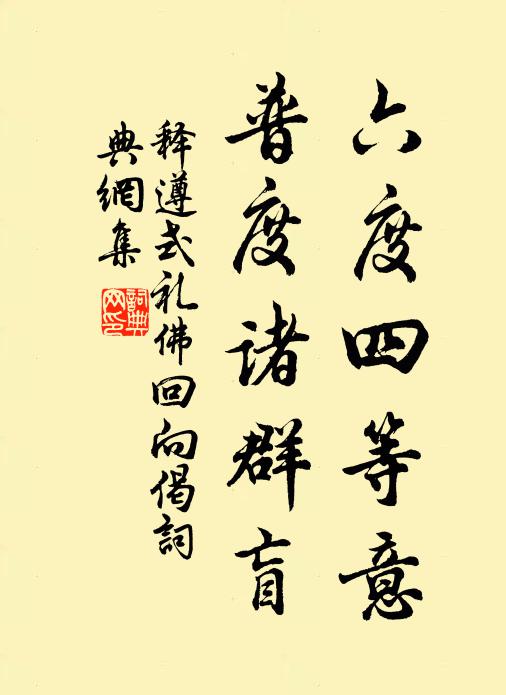 六度四等意
普度诸群盲
释遵式礼佛回向偈詞
典網集
詞典
网印